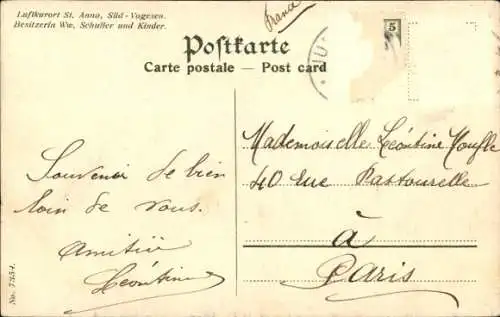 Luftkurort St. Anna, Süd-Vogesen.
Besitzerin Ww. Schuller und Kinder.
France
5
Postkarte
Carte postale — Post card
Mademoiselle Léontine
40 Rue Pastourelle
à
Paris
Souvenir de bien
loin de vous.
Amitiés
Léontine
No. 7354.